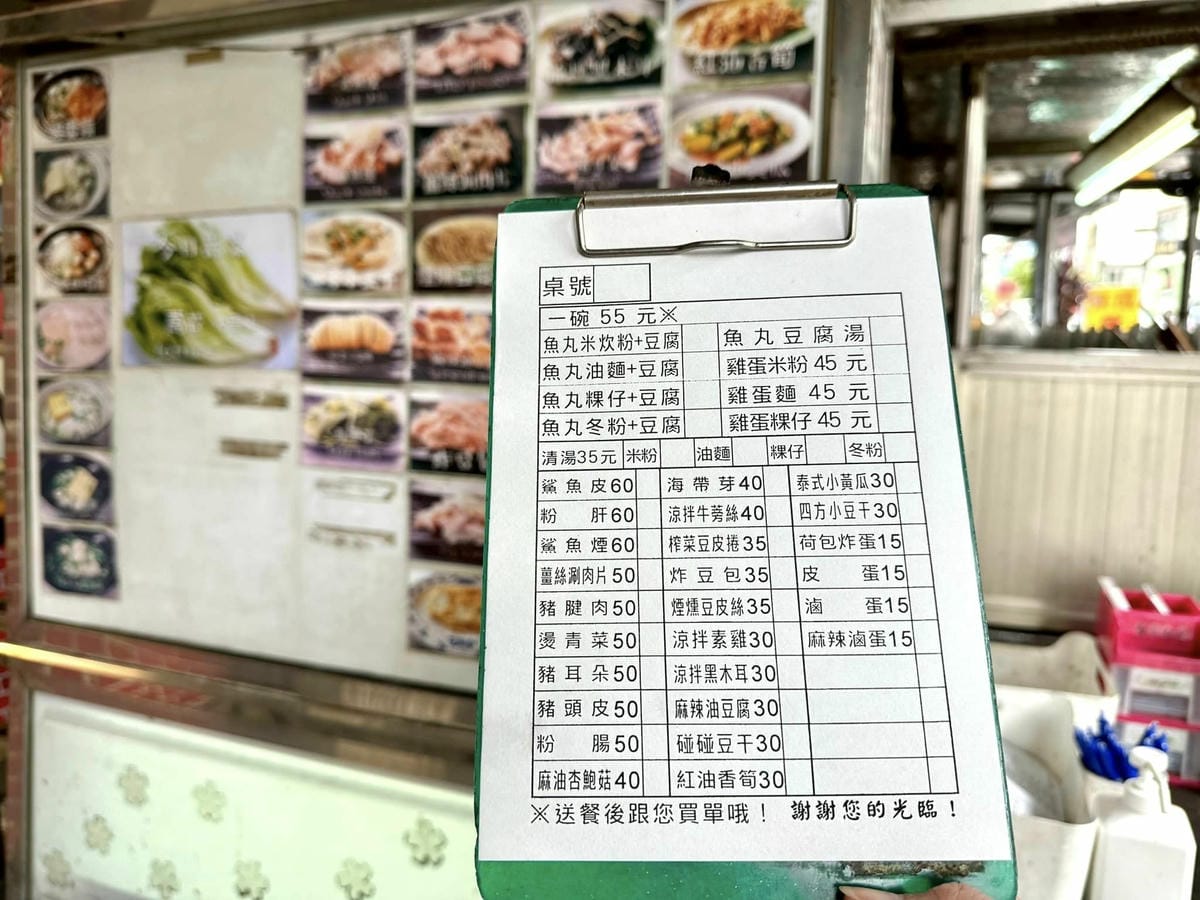 桌號
一碗 55 元※
魚丸米炊粉+豆腐 魚丸豆腐湯
魚丸油麵+豆腐 雞蛋米粉 45 元
魚丸粿仔+豆腐 雞蛋麵 45 元
魚丸冬粉+豆腐 雞蛋粿仔 45 元
清湯35元 米粉 油麵 粿仔 冬粉
鯊魚皮60 海帶芽40 泰式小黃瓜30
粉肝60 涼拌牛蒡絲40 四方小豆干30
鯊魚煙60 榨菜豆皮捲35 荷包炸蛋15
薑絲涮肉片50 炸豆包35 皮蛋15
豬腱肉50 煙燻豆皮絲35 滷蛋15
燙青菜50 涼拌素雞30 麻辣滷蛋15
豬耳朵50 涼拌黑木耳30
豬頭皮50 麻辣油豆腐30
粉腸50 碰碰豆干30
麻油杏鮑菇40 紅油香筍30
※送餐後跟您買單哦！ 謝謝您的光臨！
紅油香筍